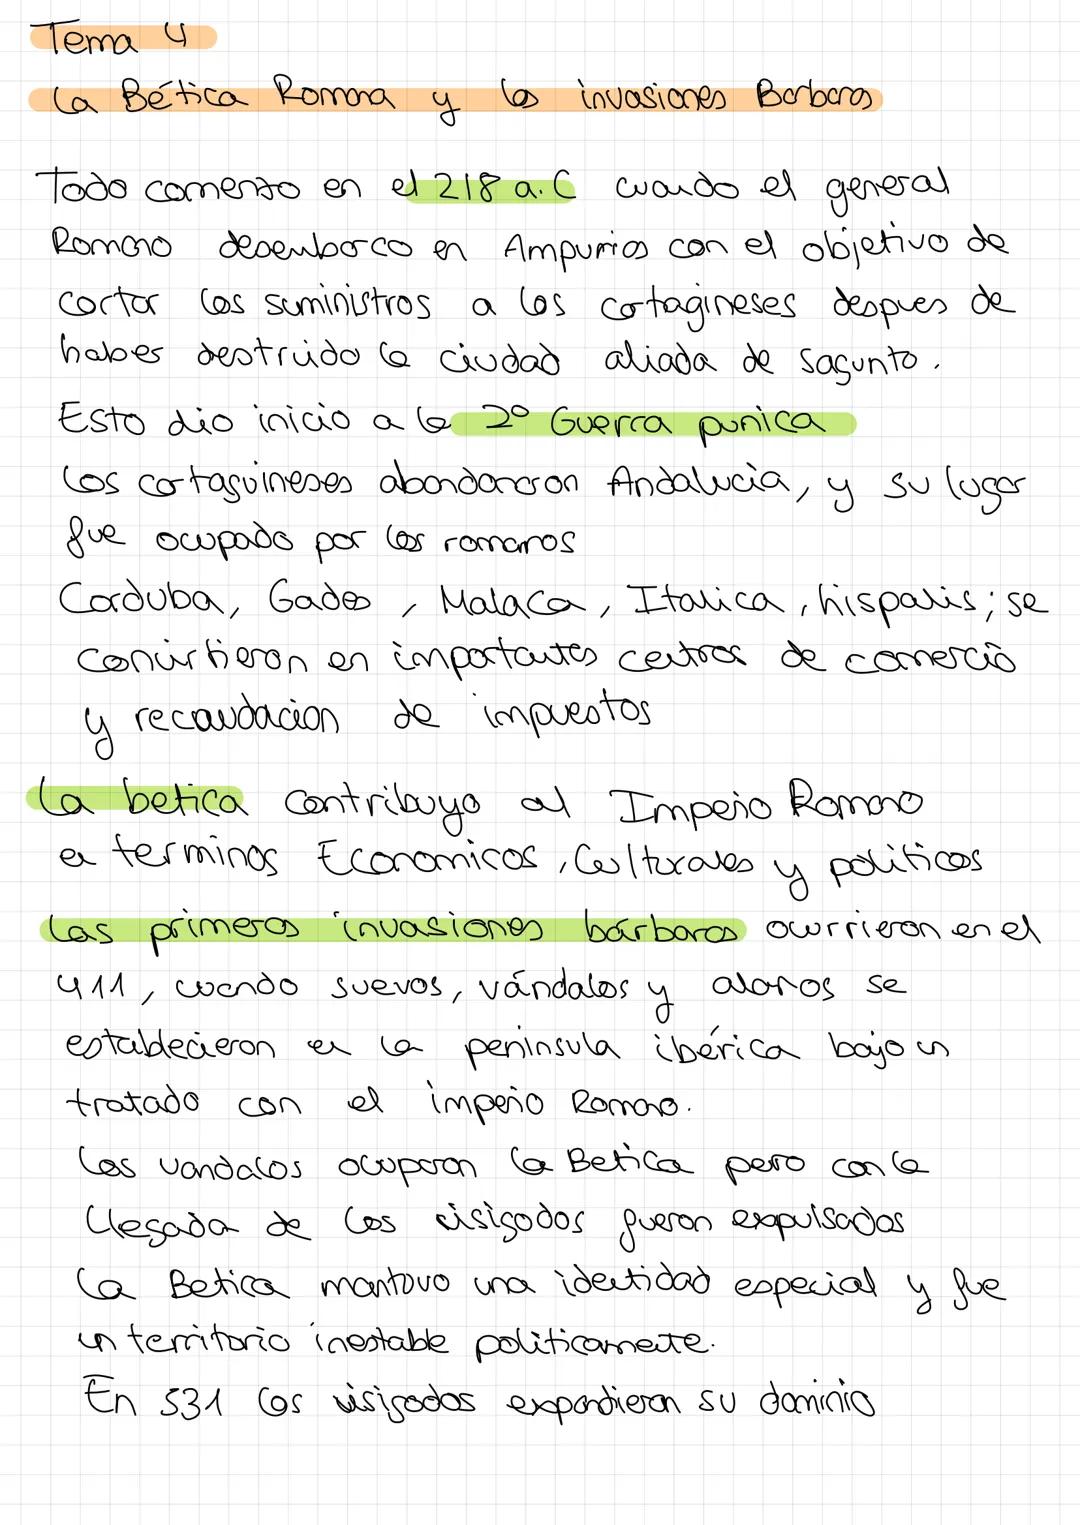 Tema 4
La Bética Romana y las invasiones Barbaras
Todo comenzo en el 218 a.C cuando el general
Romano desembarco en Ampurias con el objetivo de
cortar los suministros a los cartagineses despues de
haber destruido la ciudad aliada de Sagunto.
Esto dio inicio a la 2º Guerra punica
Los cartaguineses abandonaron Andalucia, y su lugar
fue ocupado por los romanos
Corduba, Gades, Malaca, Italica, hispalis; se
convirtieron en importantes centros de comercio
y recaudacion de impuestos
La betica contribuyo al Imperio Romano
en terminos Economicos, Culturales y politicos
Las primeras invasiones bárbaras ocurrieron en el
411, cuando suevos, vándalos y alanos se
establecieron en la peninsula ibérica bajo un
tratado con el imperio Romano.
Los vandalos ocuparon la Betica pero con la
llegada de los visigodos fueron expulsados
La Betica mantuvo una identidad especial y fue
un territorio inestable politicamente.
En 531 los visigodos expandieron su dominio